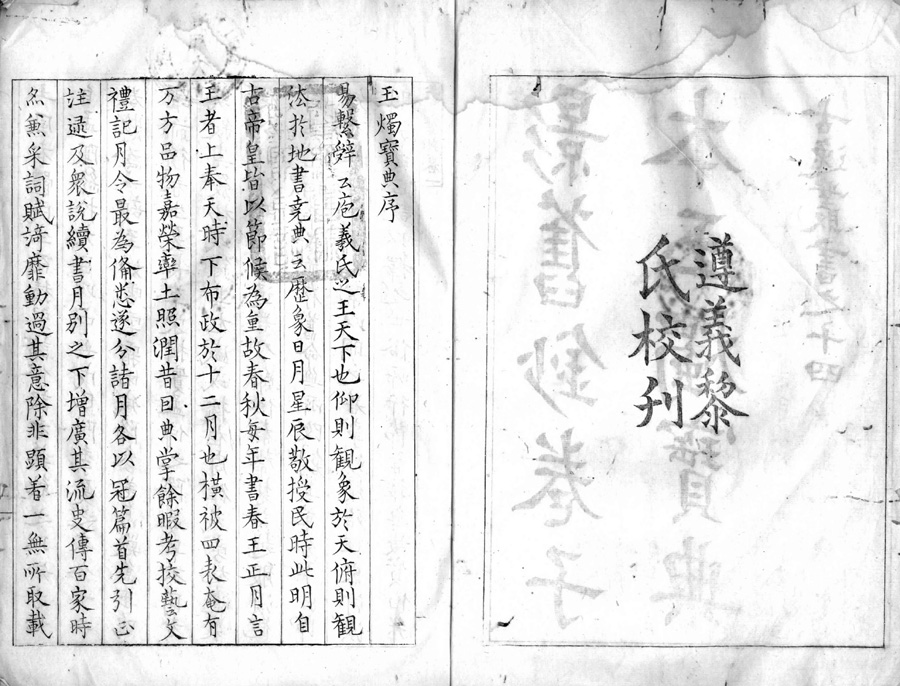 遵義黎
氏校刊
玉燭寶典序
易繫辤云庖羲氏之王天下也仰則観象於天俯則観
法於地書堯典云歴象日月星辰敬授民時此明自
古帝皇皆以節候為重故春秋每年書春王正月言
王者上奉天時下布政於十二月也橫被四表奄有
万方品物嘉榮率土照潤昔因典掌餘暇考挍藝文
禮記月令最為俻悉遂分諸月各以冠篇首先引正
注逮及衆說續書月別之下增廣其流史傳百家時
亦兼采詞賦綺靡動過其意除非顯著一無所取載